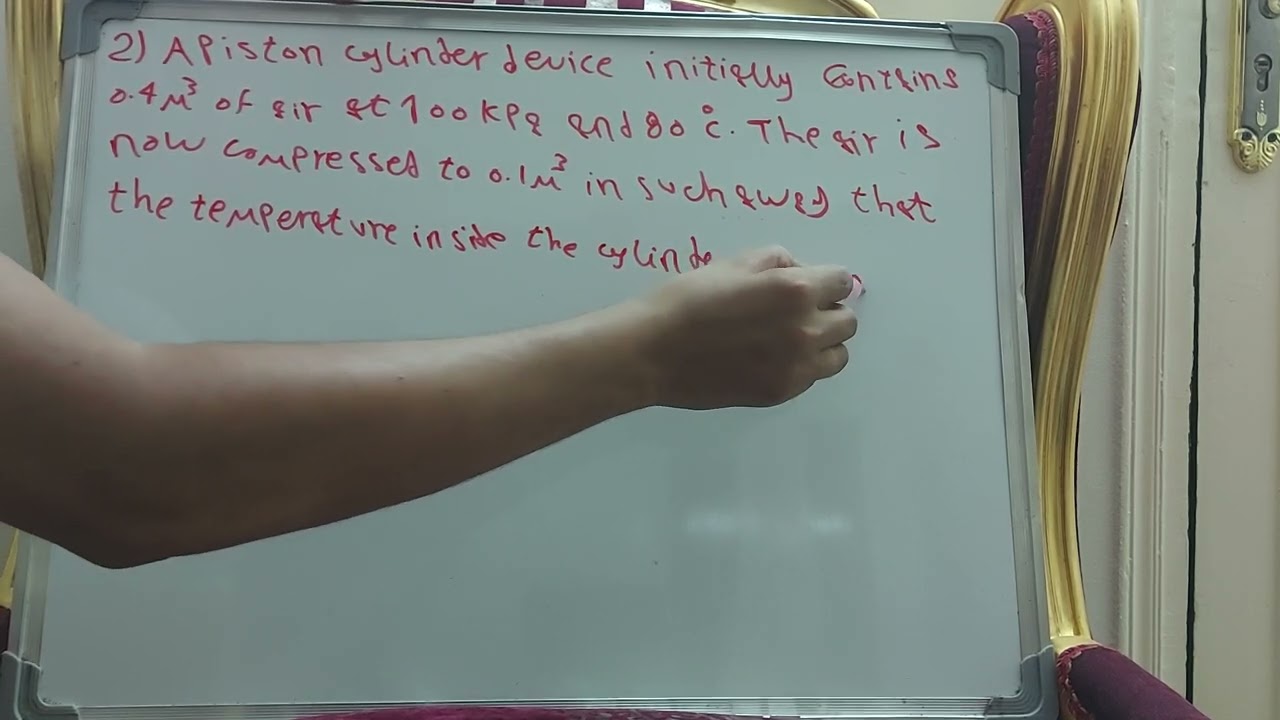 2) A Piston cylinder device initially contains
0.4 M³ of air at 100 kPa and 80 °C. The air is
now compressed to 0.1 M³ in such a way that
the temperature inside the cylinde